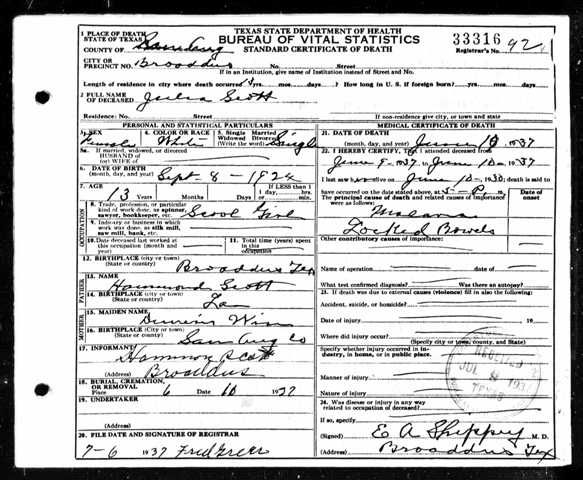 TEXAS STATE DEPARTMENT OF HEALTH
BUREAU OF VITAL STATISTICS
STANDARD CERTIFICATE OF DEATH
33316 92
Registrar's No.
1 PLACE OF DEATH
STATE OF TEXAS
COUNTY OF
CITY OR
PRECINCT NO. Broaddus No. Street
If in an Institution, give name of Institution instead of Street and No.
Length of residence in city where death occurred yrs. mos. days? How long in U. S. if foreign born? yrs. mos. days
2 FULL NAME
OF DECEASED Julia Scott
Residence: No. Street
If non-residence give city, or town and state
PERSONAL AND STATISTICAL PARTICULARS
3. SEX Female
4. COLOR OR RACE White
5. Single Married Widowed Divorced (Write the word) Single
5a. If married, widowed, or divorced
HUSBAND OF
(or) WIFE OF
6. DATE OF BIRTH
(month, day, and year) Sept - 8 - 1924
7. AGE 13 Years Months Days If LESS than 1 day, hrs. or min.
OCCUPATION
8. Trade, profession, or particular
kind of work done, as spinner,
sawyer, bookkeeper, etc. Scool Girl
9. Industry or business in which
work was done, as silk mill,
saw mill, bank, etc.
10. Date deceased last worked at
this occupation (month and
year)
11. Total time (years)
spent in this
occupation
12. BIRTHPLACE (city or town)
(State or country) Broaddus Tex
FATHER
13. NAME Hammond Scott
14. BIRTHPLACE (city or town)
(State or country) La
MOTHER
15. MAIDEN NAME
16. BIRTHPLACE (City or town)
(State or country) San Aug Co
17. INFORMANT Hammon Scott
(Address) Broaddus
18. BURIAL, CREMATION,
OR REMOVAL
Place 6 Date 10 1937
19. UNDERTAKER
(Address)
20. FILE DATE AND SIGNATURE OF REGISTRAR
7-6 1937 Fred Greer
MEDICAL CERTIFICATE OF DEATH
21. DATE OF DEATH
(month, day, and year) June 10 - 37
22. I HEREBY CERTIFY, That I attended deceased from
June 8 - 1937, to June 10 - 1937
I last saw alive on June 10 - 1930; death is said to
have occurred on the date stated above, at 5 - P. m.
The principal cause of death and related causes of importance
were as follows:
Date of onset
Malaria
Locked Bowels
Other contributory causes of importance:
Name of operation Date of
What test confirmed diagnosis? Was there an autopsy?
23. If death was due to external causes (violence) fill in also the following:
Accident, suicide, or homicide?
Date of injury 19
Where did injury occur?
(Specify city or town, county, and State)
Specify whether injury occurred in in-
dustry, in home, or in public place.
Manner of injury
Nature of injury
24. Was disease or injury in any way
related to occupation of deceased?
If so, specify
(Signed) E A Shippey M. D.
(Address) Broaddus Tex
RECEIVED
JUL 8 1937
TEXAS